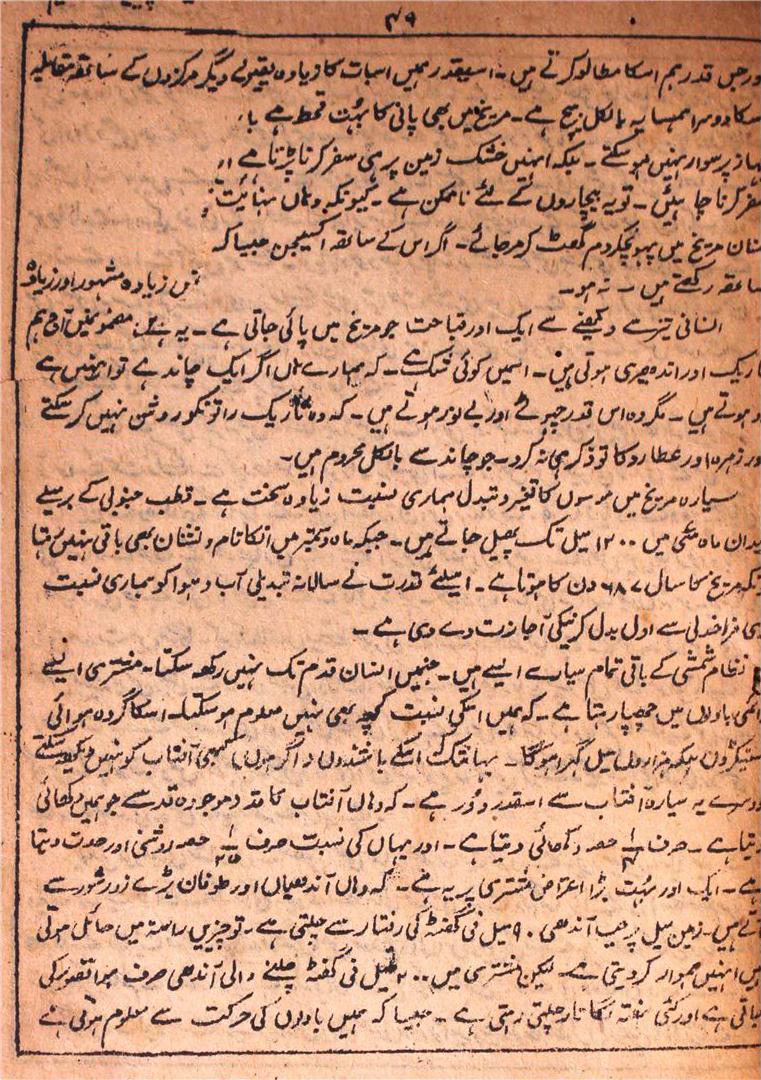 ۴۹
جس قدر ہم اسکا مطالعہ کرتے ہیں۔ اسیقدر ہمیں اسبات کا زیادہ یقین دیگر مرکزوں کے ساتھ مقابلہ
دوسرا ہمسایہ بالکل ہیچ ہے۔ مریخ میں بھی پانی کا بہت قحط ہے
پر سوار نہیں ہو سکتے۔ بلکہ انہیں خشک زمین پر ہی سفر کرنا پڑتا ہے
سفر کرنا چاہیئں۔ تو یہ بیچاروں کے لئے ناممکن ہے۔ کیونکہ وہاں نہائیت
مریخ میں پہونچکر دم گھٹ کر مر جائے۔ اگر اس کے ساتھ اکسیجن جیسا کہ
ساتھ رکھتے ہیں۔ نہ ہو۔
زیادہ مشہور اور زیادہ
انسانی دیکھنے سے ایک اور قباحت جو مریخ میں پائی جاتی ہے۔ یہ ہے
تاریک اور اندھیری ہوتی ہیں۔ اسمیں کوئی شک ہے۔ کہ ہمارے ہاں اگر ایک چاند ہے تو انہیں ہے
ہوتے ہیں۔ مگر وہ اس قدر چھوٹے اور بے نور ہوتے ہیں۔ کہ وہ تاریک راتونکو روشن نہیں کر سکتے
اور زہرہ اور عطارد کا تو ذکر ہی نہ کرو۔ جو چاند سے بالکل محروم ہیں۔
سیارہ مریخ میں موسموں کا تغیر و تبدل ہماری نسبت زیادہ سخت ہے۔ قطب جنوبی کے برفیلے
میدان ماہ مئی میں ۱۲۰۰ میل تک پھیل جاتے ہیں۔ جبکہ ماہ دسمبر میں انکا نام و نشان بھی باقی نہیں رہتا
مریخ کا سال ۶۸۷ دن کا ہوتا ہے۔ اسلئے قدرت نے سالانہ تبدیلی آب و ہوا کو ہماری نسبت
فراخدلی سے ادل بدل کرنیکی اجازت دے دی ہے۔
نظام شمسی کے باقی تمام سیارے ایسے ہیں۔ جنہیں انسان قدم تک نہیں رکھ سکتا۔ مشتری ایسے
بادلوں میں چھپا رہتا ہے۔ کہ ہمیں اسکی نسبت کچھ بھی نہیں معلوم ہو سکتا۔ اسکا گردہ ہوائی
سینکڑوں بلکہ ہزاروں میل گہرا ہوگا۔ یہانتک اسکے باشندوں (اگر ہوں) کبھی آفتاب کو نہیں دیکھ سکتے
دوسرے یہ سیارہ آفتاب سے اسقدر دور ہے۔ کہ وہاں آفتاب کا قد موجودہ قد سے جو ہمیں دکھائی
دیتا ہے۔ صرف حصہ دکھائی دیتا ہے۔ اور یہاں کی نسبت صرف ۱/۲۵ حصہ روشنی اور حدت دیتا
ہے۔ ایک اور بہت بڑا اعتراض مشتری پر یہ ہے۔ کہ وہاں آندھیاں اور طوفان بڑے زور شور سے
آتے ہیں۔ زمین پر جب آندھی ۹۰ میل فی گھنٹہ کی رفتار سے چلتی ہے۔ تو جو چیزیں راستہ میں حائل ہوتی
ہیں انہیں ہموار کر دیتی ہے۔ لیکن مشتری میں ۲۰۰ میل فی گھنٹہ چلنے والی آندھی صرف ہوا تصور کی
جاتی ہے اور کئی ہفتہ لگاتار چلتی رہتی ہے۔ جیسا کہ ہمیں بادلوں کی حرکت سے معلوم ہوتی ہے